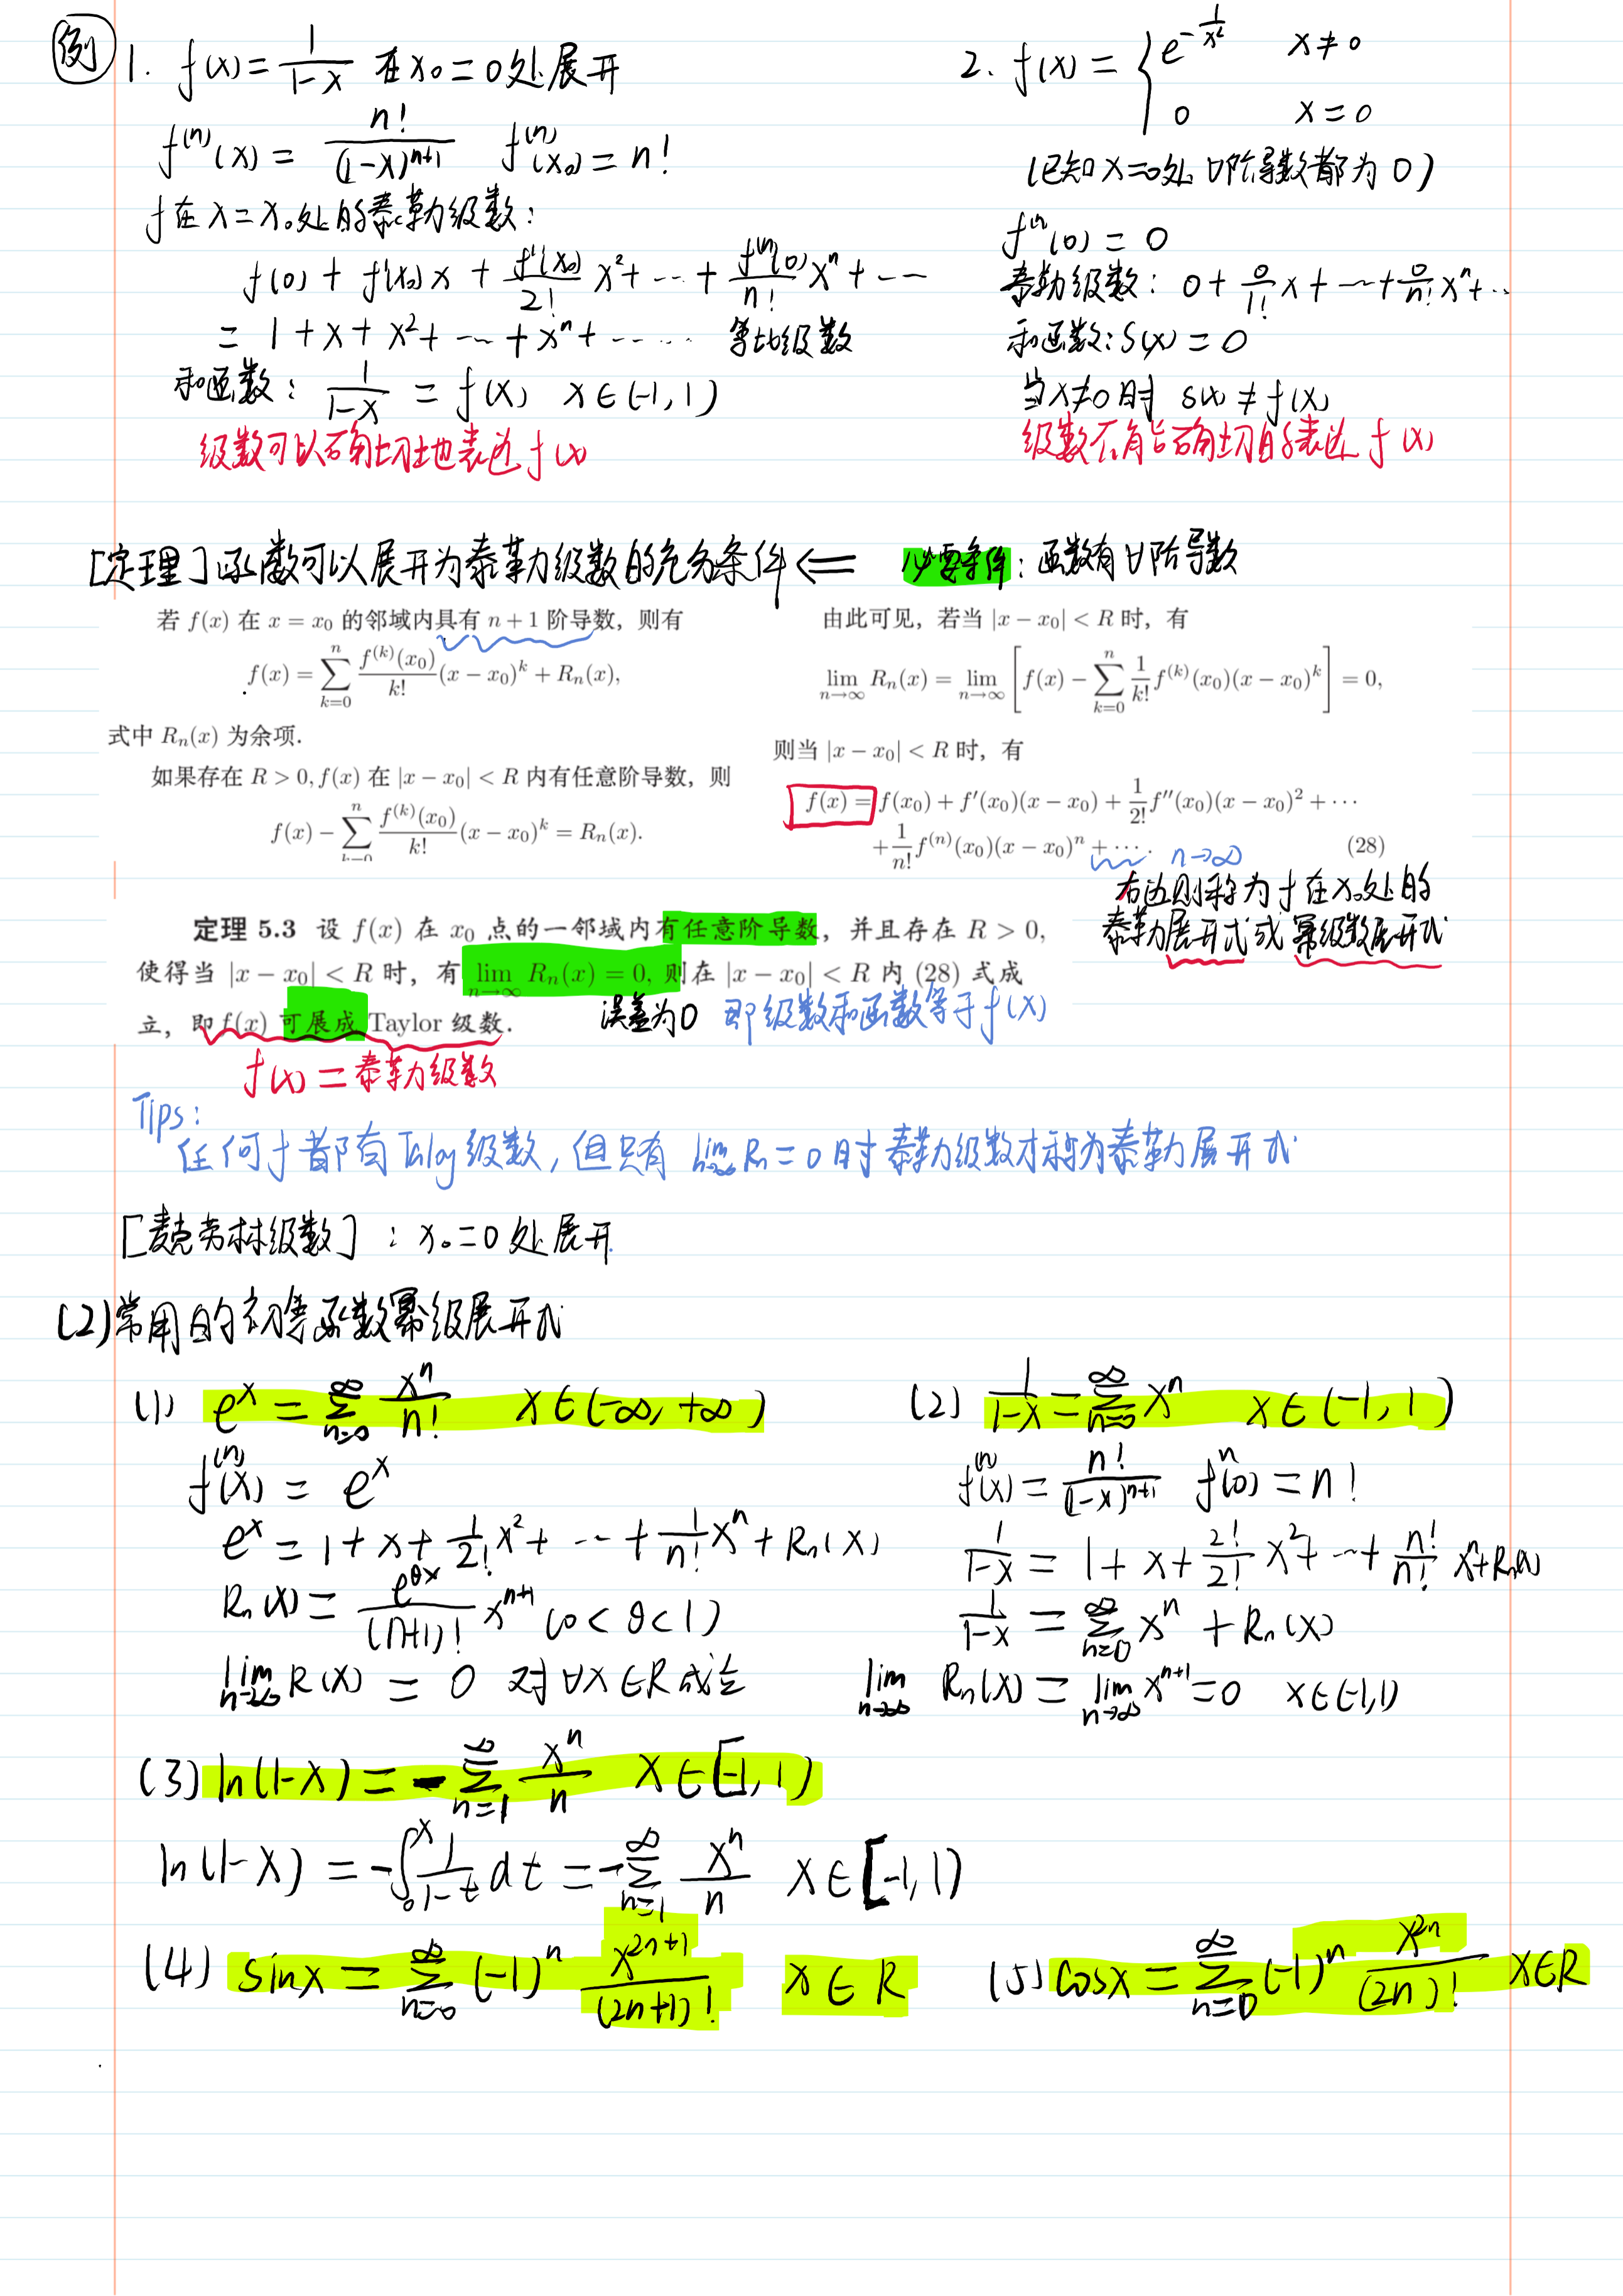 例 1. f(x) = 1/(1-x) 在 x₀ = 0处展开
f⁽ⁿ⁾(x) = n!/(1-x)ⁿ⁺¹ f⁽ⁿ⁾(x₀) = n!
f 在 x = x₀处的泰勒级数:
f(0) + f'(x₀)x + f''(x₀)/2! x² + ··· + f⁽ⁿ⁾(0)/n! xⁿ + ···
= 1 + x + x² + ··· + xⁿ + ······ 等比级数
和函数: 1/(1-x) = f(x) x∈(-1,1)
级数可以确切地表达 f(x)
2. f(x) = { e^(-1/x²) x≠0
0 x=0
(已知x=0处 ∀阶导数都为0)
f⁽ⁿ⁾(0) = 0
泰勒级数: 0 + 0/1! x + ··· + 0/n! xⁿ + ··
和函数: S(x) = 0
当x≠0时 S(x) ≠ f(x)
级数不能确切的表达 f(x)
[定理] 函数可以展开为泰勒级数的充分条件 ⇐ 必要条件: 函数有∀阶导数
若 f(x) 在 x = x₀ 的邻域内具有 n + 1 阶导数，则有
f(x) = ∑_{k=0}^{n} f⁽ᵏ⁾(x₀)/k! (x − x₀)ᵏ + Rₙ(x),
式中 Rₙ(x) 为余项.
如果存在 R > 0, f(x) 在 |x − x₀| < R 内有任意阶导数，则
f(x) − ∑_{k=0}^{n} f⁽ᵏ⁾(x₀)/k! (x − x₀)ᵏ = Rₙ(x).
由此可见，若当 |x − x₀| < R 时，有
lim_{n→∞} Rₙ(x) = lim_{n→∞} [f(x) − ∑_{k=0}^{n} 1/k! f⁽ᵏ⁾(x₀)(x − x₀)ᵏ] = 0,
则当 |x − x₀| < R 时，有
f(x) = f(x₀) + f′(x₀)(x − x₀) + 1/2! f″(x₀)(x − x₀)² + ···
+ 1/n! f⁽ⁿ⁾(x₀)(x − x₀)ⁿ + ···. (28)
n→∞
右边则称为 f 在 x₀处的
泰勒展开式或 幂级数展开式
定理 5.3 设 f(x) 在 x₀ 点的一邻域内有任意阶导数，并且存在 R > 0,
使得当 |x − x₀| < R 时，有 lim_{n→∞} Rₙ(x) = 0, 则在 |x − x₀| < R 内 (28) 式成
立，即 f(x) 可展成 Taylor 级数.
误差为0 即级数和函数等于f(x)
f(x) = 泰勒级数
Tips:
任何f都有Taloy级数, 但只有 lim_{n→∞} Rₙ = 0 时泰勒级数才称为泰勒展开式
[麦克劳林级数] : x₀ = 0 处展开
(2) 常用的初等函数幂级展开式
(1) eˣ = ∑_{n=0}^{∞} xⁿ/n! x∈(-∞, +∞)
f⁽ⁿ⁾(x) = eˣ
eˣ = 1 + x + 1/2! x² + ··· + 1/n! xⁿ + Rₙ(x)
Rₙ(x) = e^{θx}/(n+1)! xⁿ⁺¹ (0<θ<1)
lim_{n→∞} R(x) = 0 对∀x∈R成立
(2) 1/(1-x) = ∑_{n=0}^{∞} xⁿ x∈(-1,1)
f⁽ⁿ⁾(x) = n!/(1-x)ⁿ⁺¹ fⁿ(0) = n!
1/(1-x) = 1 + x + 2!/2! x² + ··· + n!/n! xⁿ + Rₙ(x)
1/(1-x) = ∑_{n=0}^{∞} xⁿ + Rₙ(x)
lim_{n→∞} Rₙ(x) = lim_{n→∞} xⁿ⁺¹ = 0 x∈(-1,1)
(3) ln(1-x) = -∑_{n=1}^{∞} xⁿ/n x∈[-1,1)
ln(1-x) = -∫₀ˣ 1/(1-t) dt = -∑_{n=1}^{∞} xⁿ/n x∈[-1,1)
(4) sinx = ∑_{n=0}^{∞} (-1)ⁿ x²ⁿ⁺¹/(2n+1)! x∈R
(5) cosx = ∑_{n=0}^{∞} (-1)ⁿ x²ⁿ/(2n)! x∈R